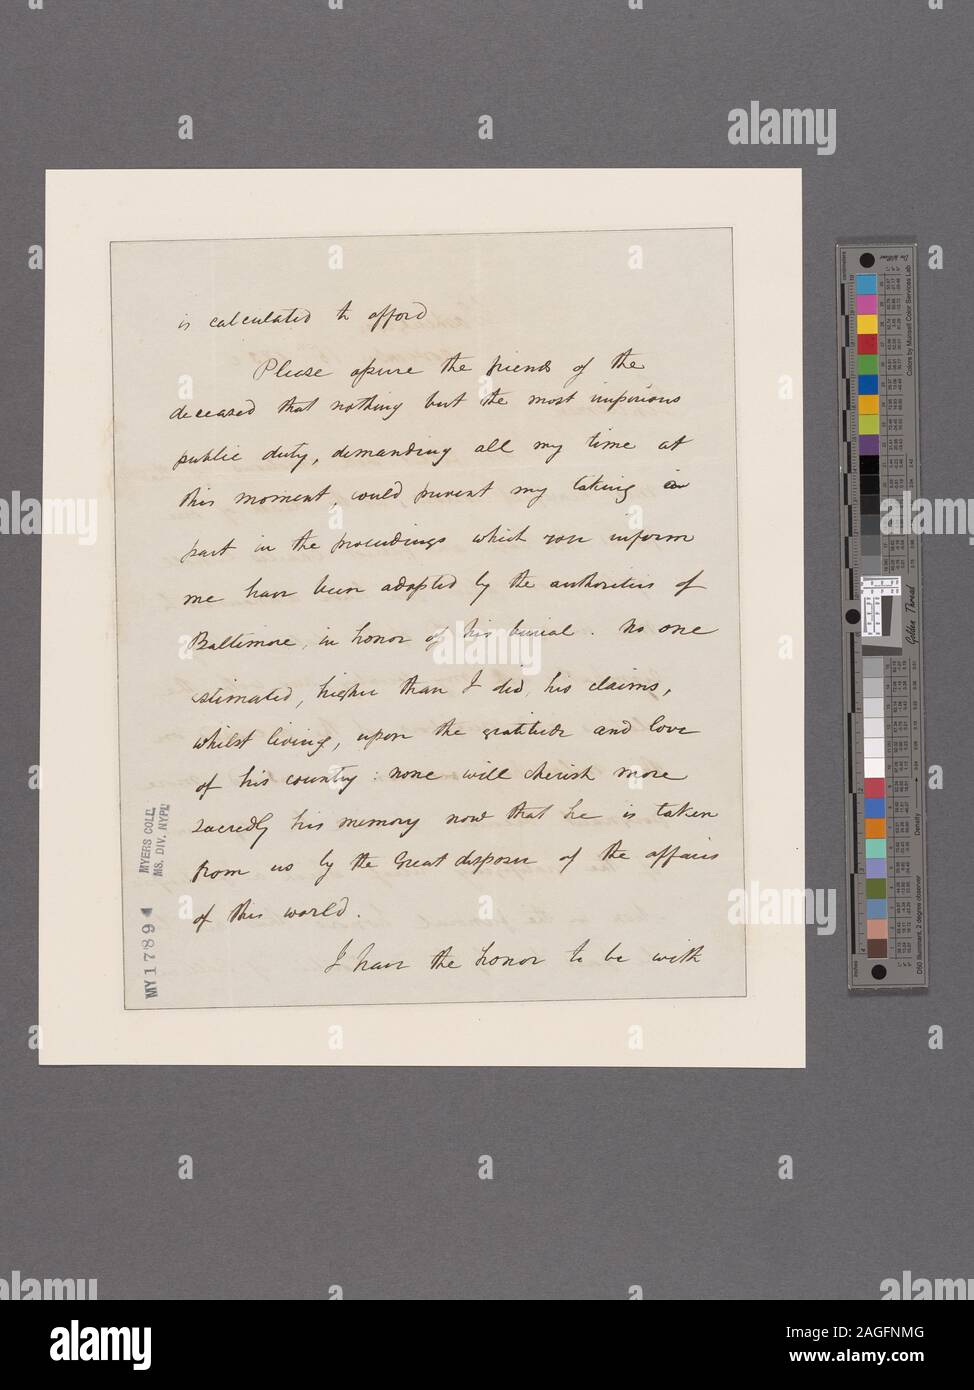 is calculated to afford
Please assure the friends of the
deceased that nothing but the most imperious
public duty, demanding all my time at
this moment, could prevent my taking a
part in the proceedings which you inform
me have been adopted by the authorities of
Baltimore, in honor of his burial. No one
estimated, higher than I did, his claims,
whilst living, upon the gratitude and love
of his country: none will cherish more
sacredly his memory now that he is taken
from us by the Great disposer of the affairs
of this world.
I have the honor to be with
MYERS COLL.
MS. DIV. NYPL
MY1789
Colors by Munsell Color Services Lab
Golden Thread
Density
D50 Illuminant, 2 degree observer
inches
centimeters
alamy
alamy
Image ID: 2AGFNMG
www.alamy.com